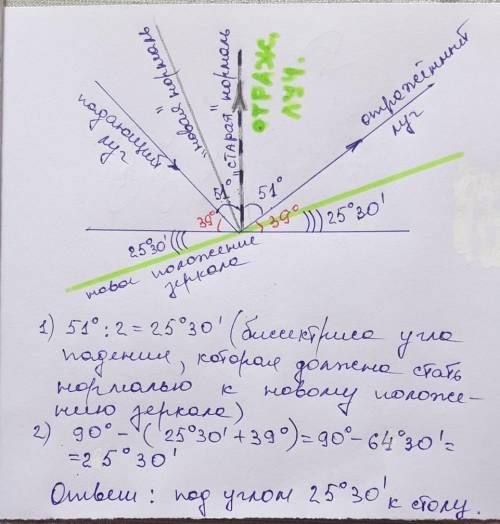 "новая" нормаль
"старая" нормаль
ОТРАЖ.
ЛУЧ.
отражённый
луч
падающий
луч
51°
51°
39°
39°
25°30'
25°30'
новое положение
зеркала
1) 51° : 2 = 25°30' (биссектриса угла
падения, которая должна стать
нормалью к новому положе-
нию зеркала)
2) 90° - (25°30' + 39°) = 90° - 64°30' =
= 25°30'
Ответ: под углом 25°30' к столу.